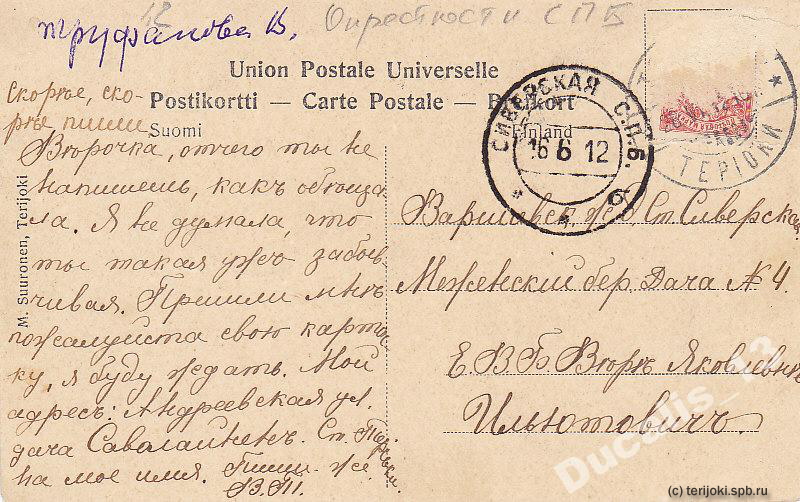 12
Окрестности СПб
Труфанова В.
Union Postale Universelle
Postikortti — Carte Postale — Brefkort
Suomi
Finland
Скорѣе, ско-
рѣе пиши
Вѣрочка, отчего ты не
напишешь, какъ обѣща
ла. Я не думала, что
ты такая ужъ забыв
чивая. Пришли мнѣ
пожалуйста свою карточ
ку, я буду ждать. Мой
адресъ: Андреевская ул.
дача Саволайненъ. Ст.
на мое имя. Пиши же.
В.Т.
M. Suuronen, Terijoki
СИВЕРСКАЯ С.П.Б.
16 6 12
б
ТЕРІОКИ
Варшавск. ж.д. Ст. Сиверская
Меженскій бер. Дача № 4.
Е. В. Б. Вѣрѣ Яковлевнѣ
Ильютовичъ.
Ducatis_13
(c) terijoki.spb.ru